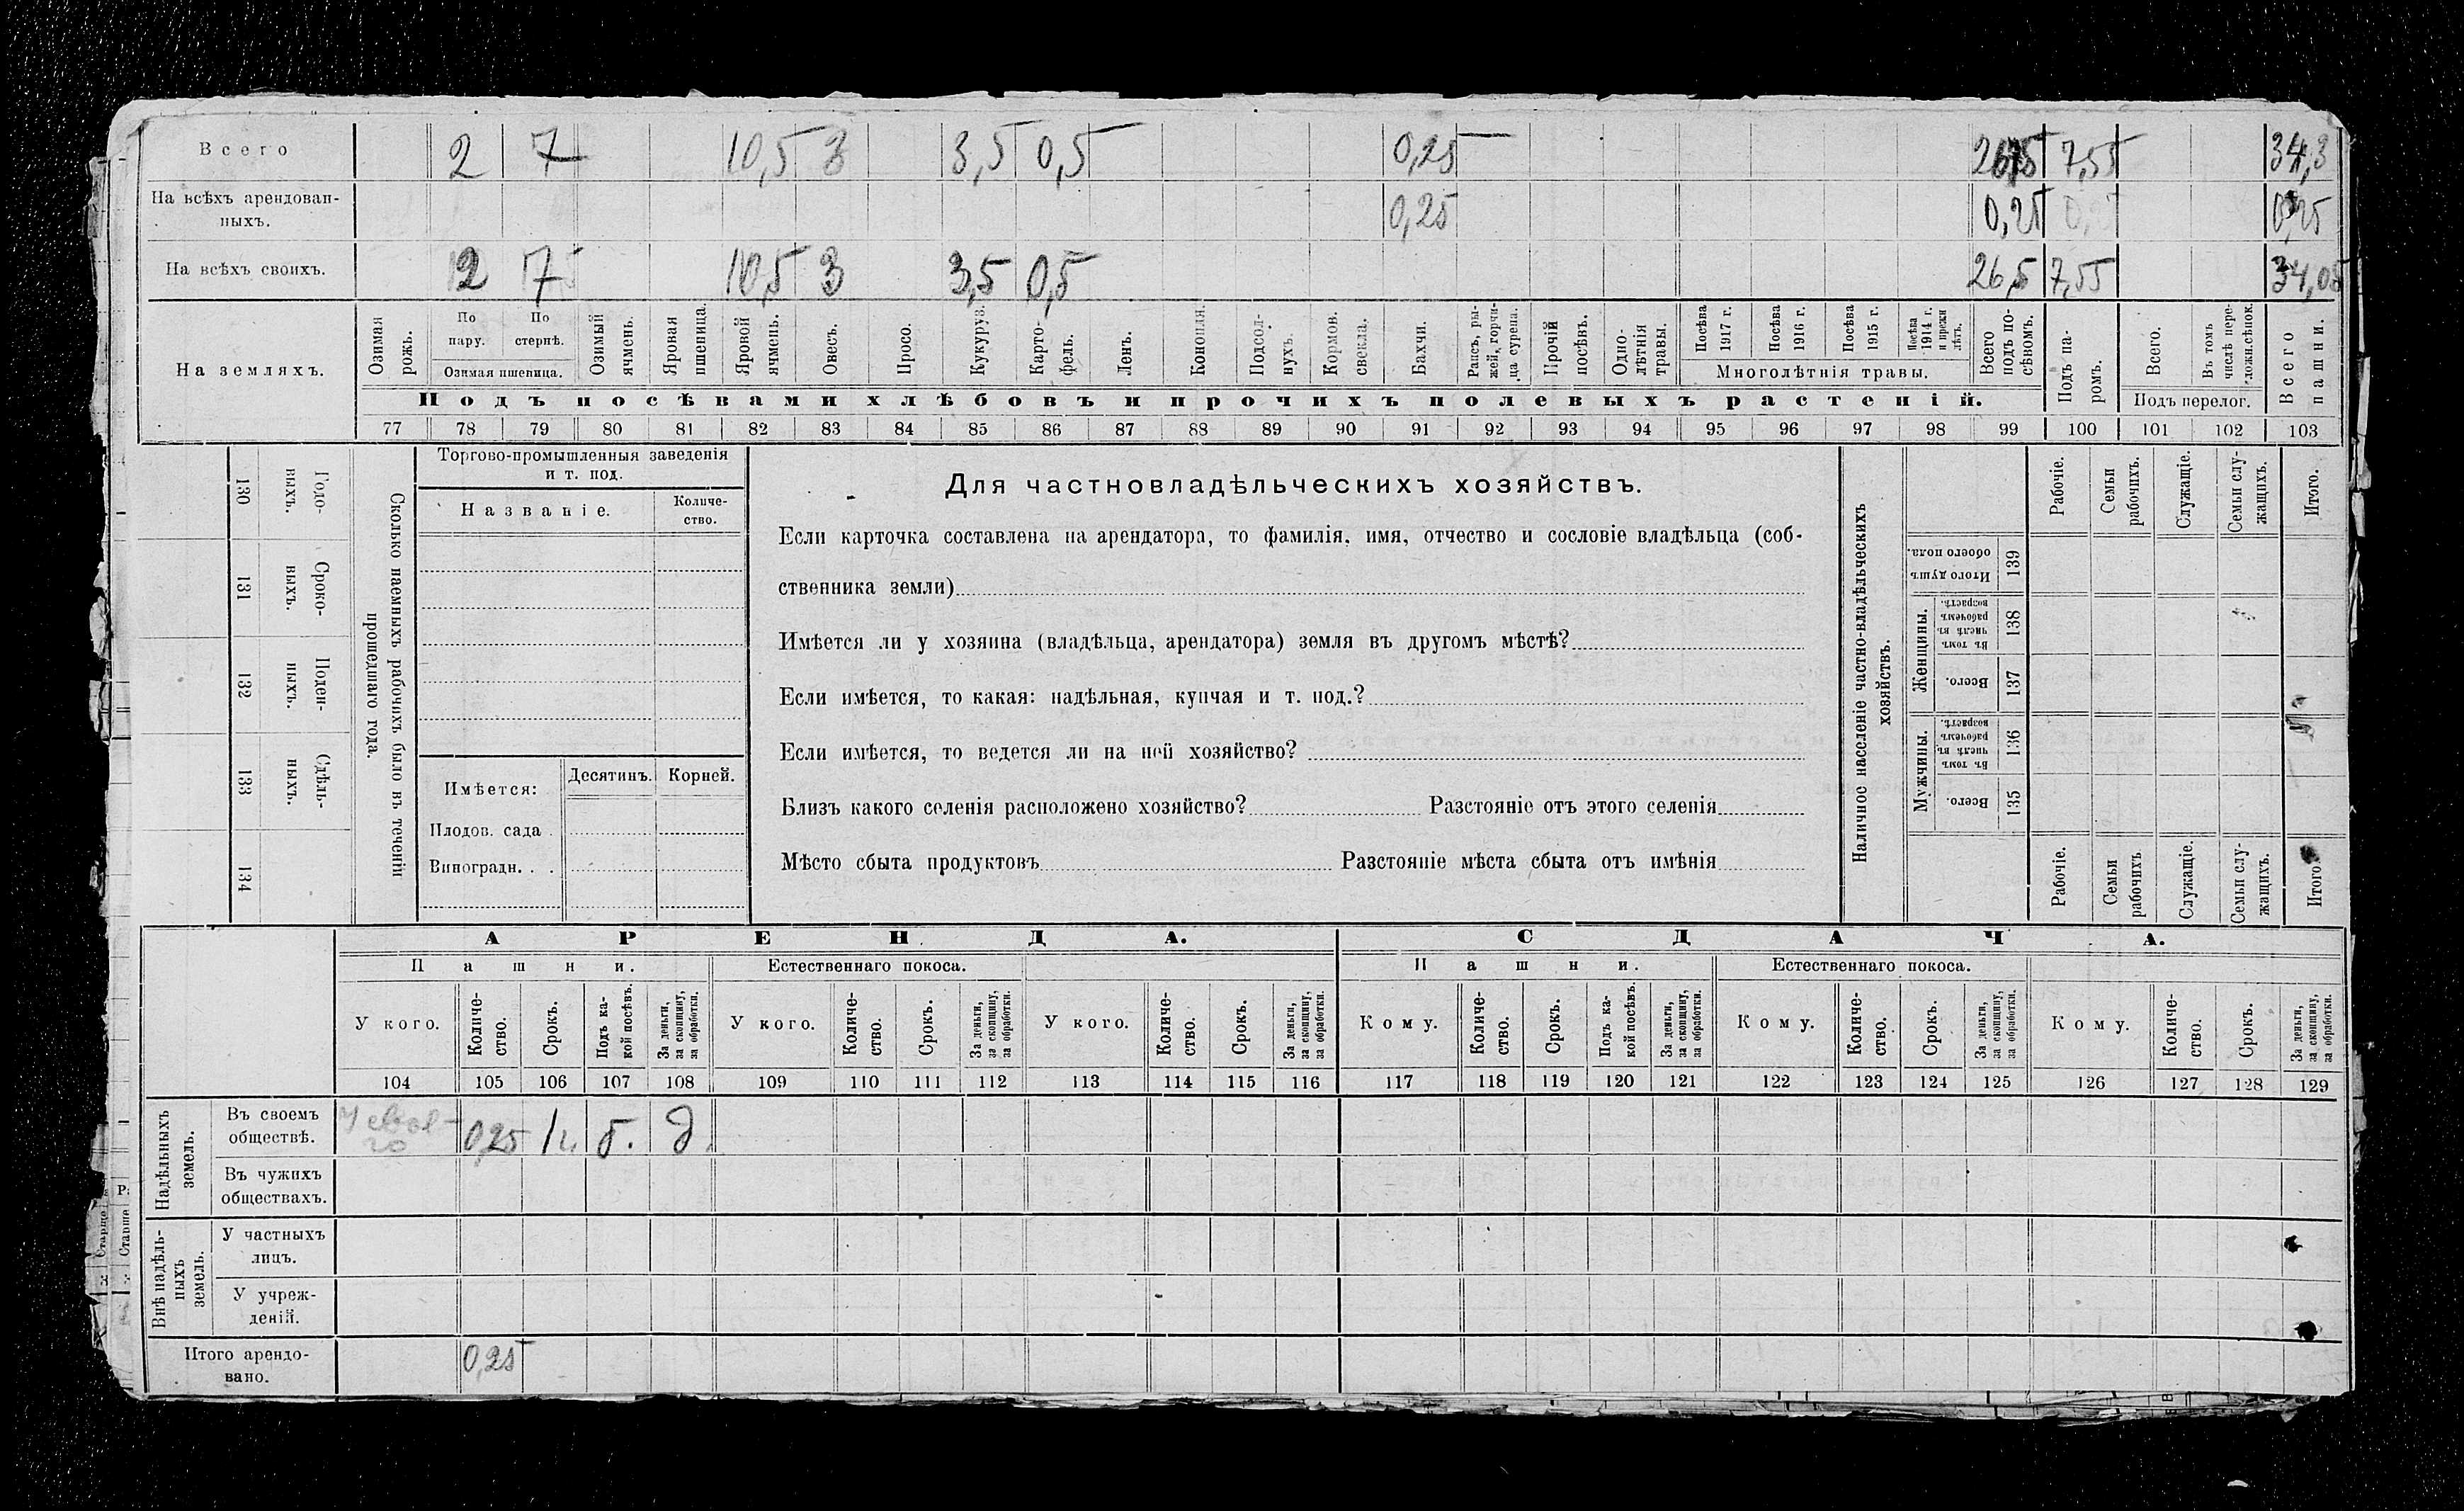 Всего 2 7 10,5 3 3,5 0,5 0,25 26,75 7,55 34,3
На всѣхъ арендован-
ныхъ. 0,25 0,25 0,25
На всѣхъ своихъ. 2 7 10,5 3 3,5 0,5 26,5 7,55 34,05
На земляхъ.
Озимая рожь.
По пару.
По стернѣ.
Озимая пшеница.
Озимый ячмень.
Яровая пшеница.
Яровой ячмень.
Овесъ.
Просо.
Кукуруз.
Карто-
фель.
Ленъ.
Конопля.
Подсол-
нухъ.
Кормов.
свекла.
Бахчи.
Рапсъ, ры-
жей, горчи-
ца сурепа.
Прочій
посѣвъ.
Одно-
лѣтнія
травы.
Посѣва
1917 г.
Посѣва
1916 г.
Посѣва
1915 г.
Посѣва
1914 г.
и прежн
лѣтъ.
Многолѣтнія травы.
Всего
подъ по-
сѣвомъ.
Подъ па-
ромъ.
Всего.
Въ томъ
числѣ пере-
ложн.сѣнок.
Подъ перелог.
Всего
пашни.
Подъ посѣвами хлѣбовъ и прочихъ полевыхъ растеній.
77 78 79 80 81 82 83 84 85 86 87 88 89 90 91 92 93 94 95 96 97 98 99 100 101 102 103
Сколько наемныхъ рабочихъ было въ теченіи
прошедшаго года.
Годо-
выхъ.
130
Сроко-
выхъ.
131
Поден-
ныхъ.
132
Сдѣль-
ныхъ.
133
134
Торгово-промышленныя заведенія
и т. под.
Названіе.
Количе-
ство.
Имѣется:
Десятинъ.
Корней.
Плодов. сада .
Виноградн. . .
Для частновладѣльческихъ хозяйствъ.
Если карточка составлена на арендатора, то фамилія, имя, отчество и сословіе владѣльца (соб-
ственника земли)
Имѣется ли у хозяина (владѣльца, арендатора) земля въ другомъ мѣстѣ?
Если имѣется, то какая: надѣльная, купчая и т. под.?
Если имѣется, то ведется ли на ней хозяйство?
Близъ какого селенія расположено хозяйство? Разстояніе отъ этого селенія
Мѣсто сбыта продуктовъ Разстояніе мѣста сбыта отъ имѣнія
Наличное населеніе частно-владѣльческихъ
хозяйствъ.
Рабочіе.
Семьи
рабочихъ.
Служащіе.
Семьи слу-
жащихъ.
Итого.
Итого душъ
обоего пола.
139
Женщины.
Въ томъ
числѣ въ
рабочемъ
возрастѣ.
138
Всего.
137
Мужчины.
Въ томъ
числѣ въ
рабочемъ
возрастѣ.
136
Всего.
135
Рабочіе.
Семьи
рабочихъ
Служащіе.
Семьи слу-
жащихъ.
Итого
АРЕНДА. СДАЧА.
Пашни. Естественнаго покоса. Пашни. Естественнаго покоса.
У кого.
Количе-
ство.
Срокъ.
Подъ ка-
кой посѣвъ.
За деньги,
за скопщину,
за обработки.
У кого.
Количе-
ство.
Срокъ.
За деньги,
за скопщину,
за обработки.
У кого.
Количе-
ство.
Срокъ.
За деньги,
за скопщину,
за обработки.
Кому.
Количе-
ство.
Срокъ.
Подъ ка-
кой посѣвъ.
За деньги,
за скопщину,
за обработки.
Кому.
Количе-
ство.
Срокъ.
За деньги,
за скопщину,
за обработки.
Кому.
Количе-
ство.
Срокъ.
За деньги,
за скопщину,
за обработки.
104 105 106 107 108 109 110 111 112 113 114 115 116 117 118 119 120 121 122 123 124 125 126 127 128 129
Надѣльныхъ
земель.
Въ своемъ
обществѣ. 0,25 б. д.
Въ чужихъ
обществахъ.
Внѣ надѣль-
ныхъ
земель.
У частныхъ
лицъ.
У учреж-
деній.
Итого арендо-
вано. 0,25